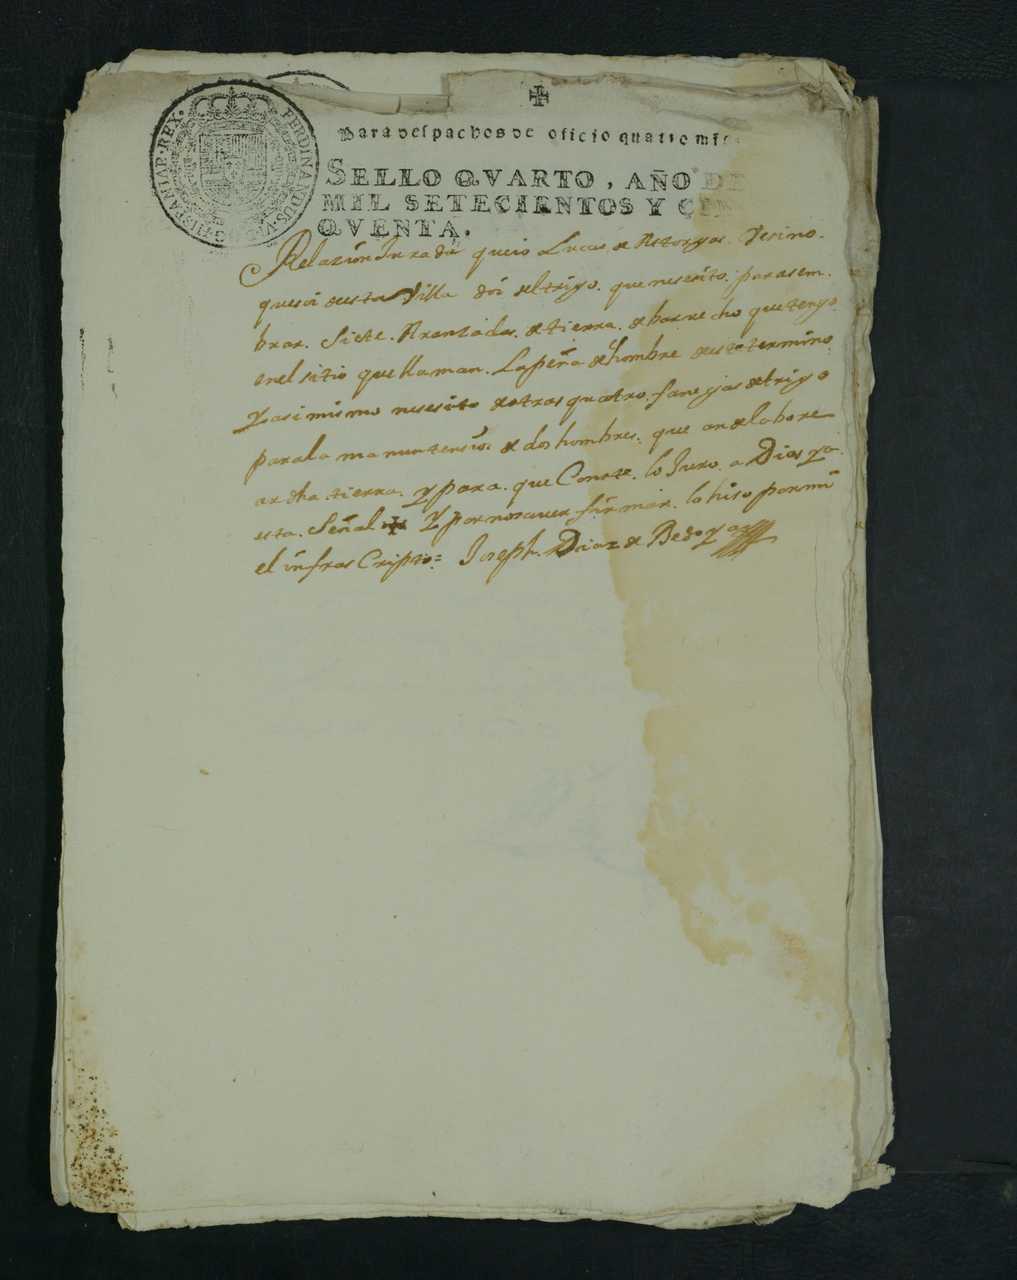 FERDINANDUS·VI·D·G·HISPANIAR·REX·
✠
Para despachos de oficio quatro mrs
SELLO QVARTO, AÑO DE
MIL SETECIENTOS Y CIN
QVENTA.
Relazion Jurada queio Lucas de Astorga Vesino
quesoi desta Villa doi del trigo que nesesito para sem
brar Siete Aranzadas de tierra de barvecho que tengo
en el sitio que llaman La peña del hombre deste termino
Y asi mismo nesesito de otras quatro fanejas de trigo
para la manuntension de dos hombres que an de labore
ar dha tierra Y para que Conste lo Juro a Dios y a
esta Señal ✠ Y por no saver firmar lo hiso por mi
el infras Cripto= Joseph Diaz de Bedoya